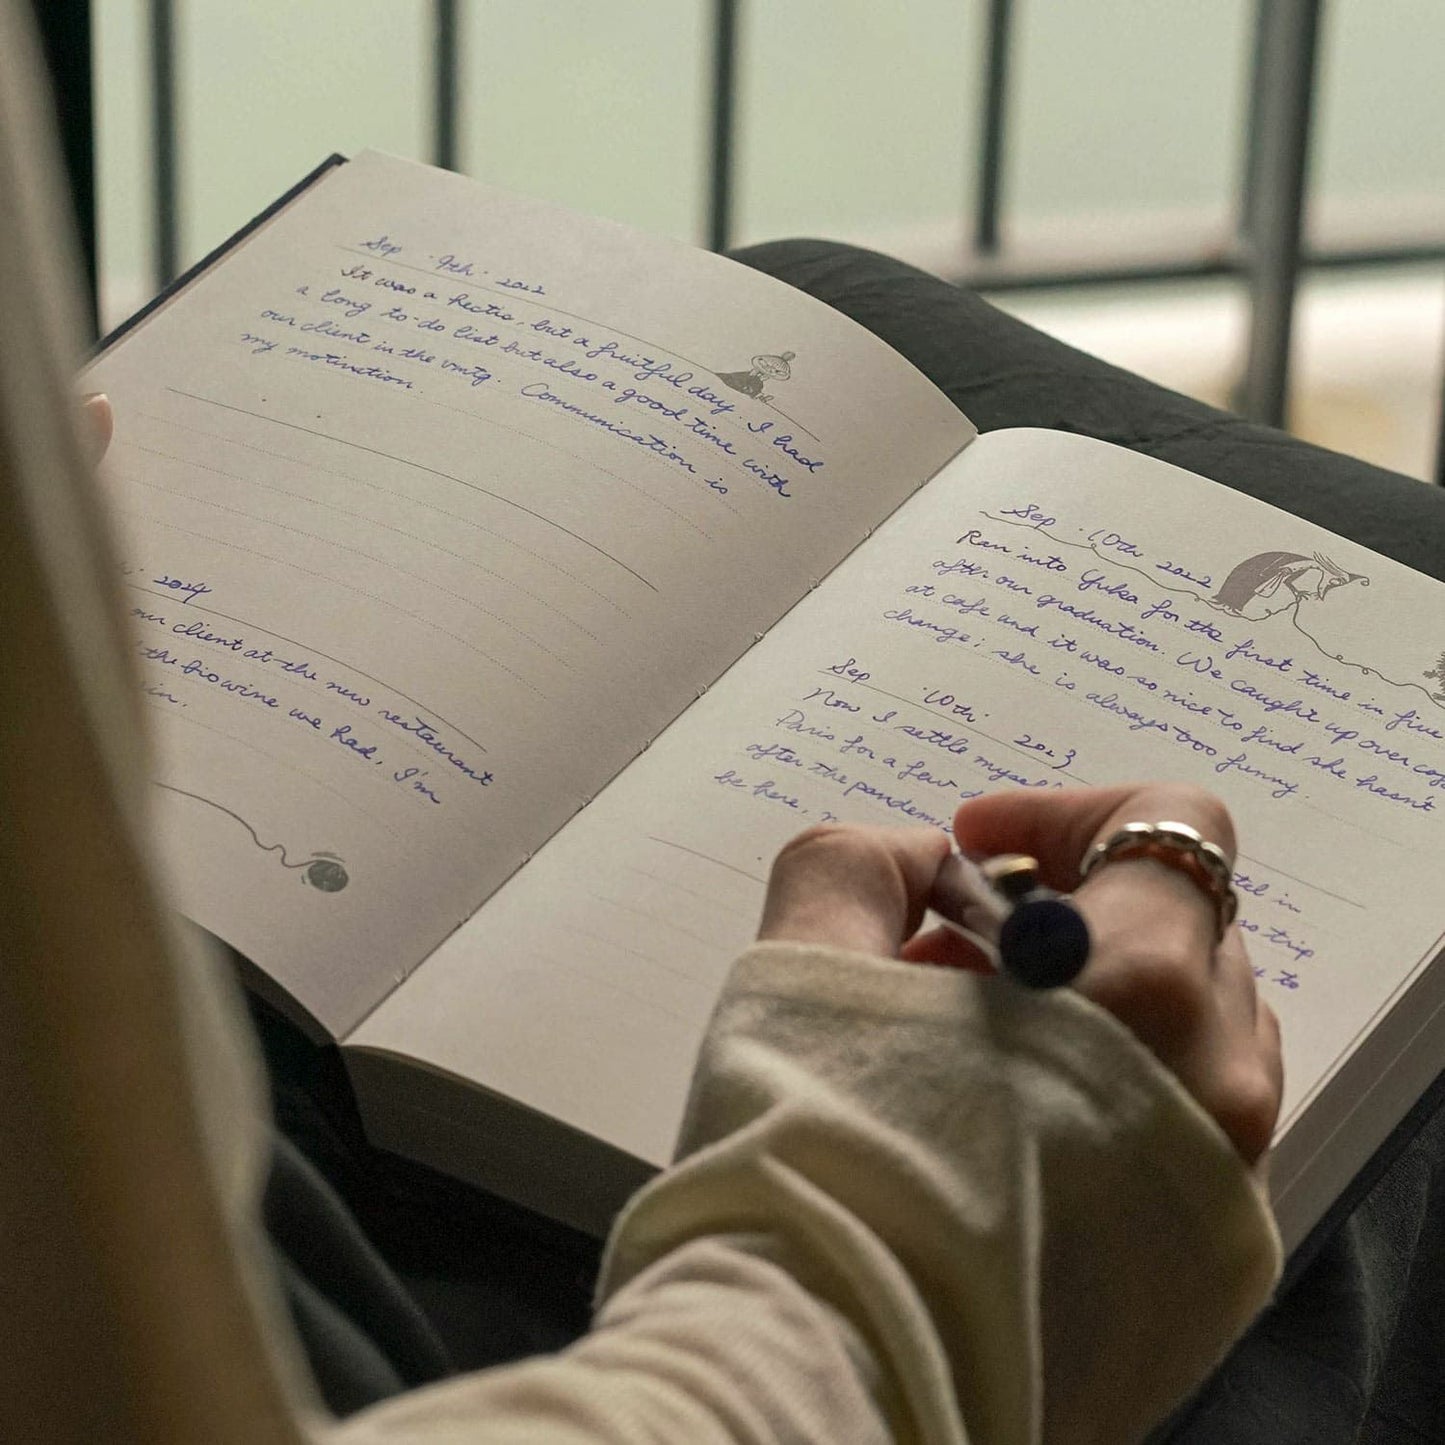 Sep . 9th . 2022
It was a hectic, but a fruitful day. I had
a long to-do list but also a good time with
our client in the vmtg. Communication is
my motivation.
2024
our client at the new restaurant
the bio wine we had, I'm
in.
Sep . 10th 2022
Ran into Yuka for the first time in five
after our graduation. We caught up over
at cafe and it was so nice to find she hasn't
change; she is always too funny.
Sep . 10th . 2023
Now I settle myself tel in
Paris for a few so trip
after the pandemic to
be here,